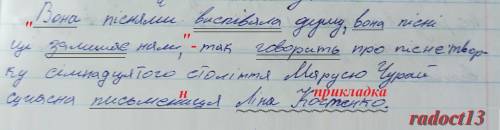 "Вона піснями виспівала душу, вона пісні
ці залишає нам,"- так говорить про піснетвор-
ку сімнадцятого століття Марусю Чурай
н прикладка
сучасна письменниця Ліна Костенко.
radoct13